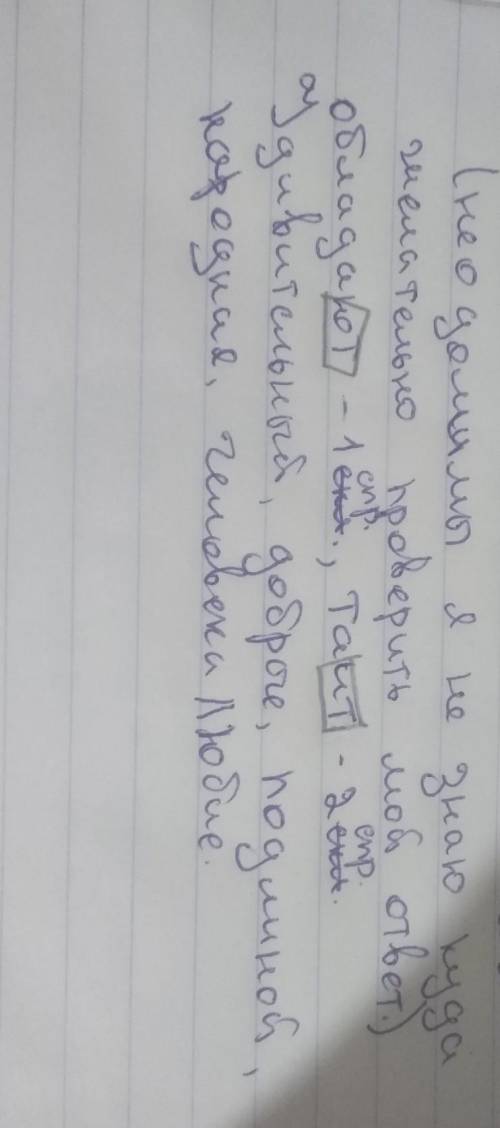 (неодолимы я не знаю куда
желательно проверить мой ответ.)
обладают - 1 спр., таит - 2 спр.
удивительный, доброе, подлиной,
народная, человеколюбие.